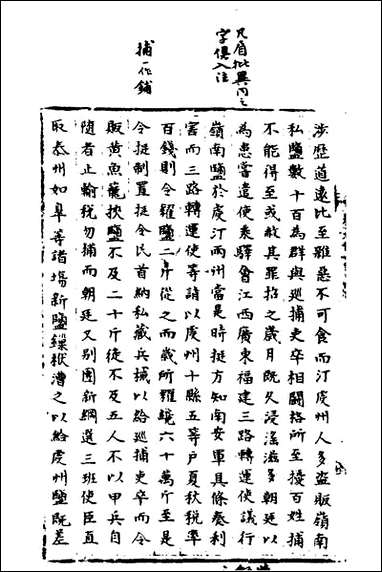 凡眉批異同之
字俱入注
捕一作鋪
涉歷道遠比至雜惡不可食而汀虔州人多盜販嶺南
私鹽數十百為群與巡捕吏卒相鬪格所至擾百姓捕
不能得至或赦其罪招之歲月既久浸滛滋多朝廷以
為患嘗遣使乘驛會江西廣東福建三路轉運使議行
嶺南鹽於虔汀兩州當是時挺方知南安軍具條奏利
害而三路轉運使等請以虔州十縣五等戶夏秋稅率
百錢則令糴鹽二斤從之而歲所糴纔六十萬斤至是
令挺制置挺令民首納私藏兵械以給巡捕吏卒而令
販黃魚籠挾鹽不及二十斤徒不及五人不以甲兵自
隨者止輸稅勿捕而朝廷又别團新綱選三班使臣直
取泰州如臯等諸場新鹽漕之以給虔州鹽既差